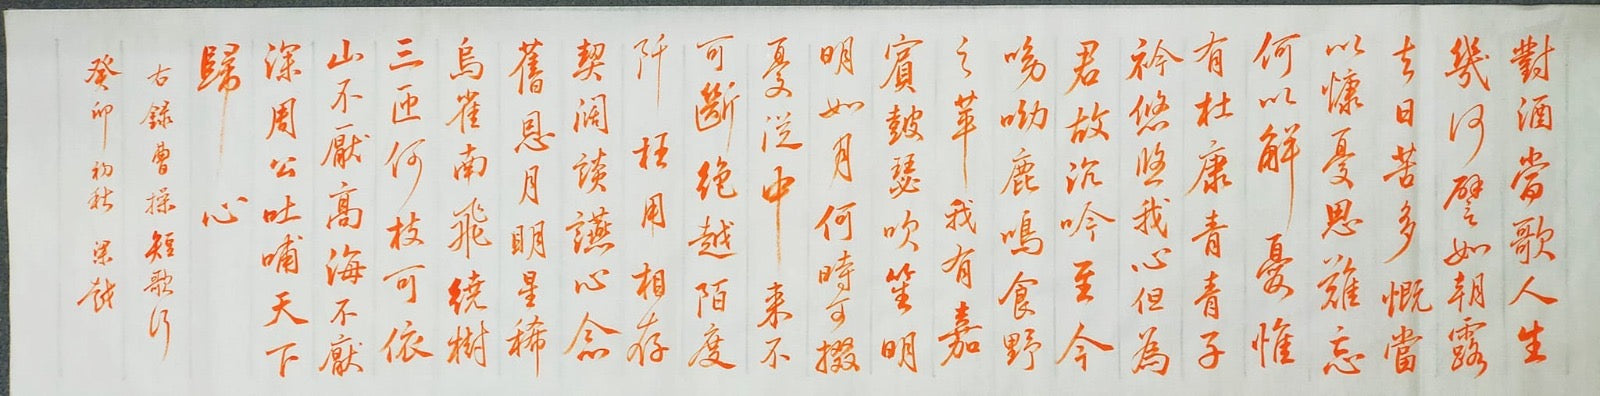 對酒當歌人生
幾何譬如朝露
去日苦多慨當
以慷憂思難忘
何以解憂惟
有杜康青青子
衿悠悠我心但為
君故沉吟至今
呦呦鹿鳴食野
之苹我有嘉
賓鼓瑟吹笙明
明如月何時可掇
憂從中來不
可斷絕越陌度
阡枉用相存
契闊談讌心念
舊恩月明星稀
烏雀南飛繞樹
三匝何枝可依
山不厭高海不厭
深周公吐哺天下
歸心
右錄曹操短歌行
癸卯初秋梁越